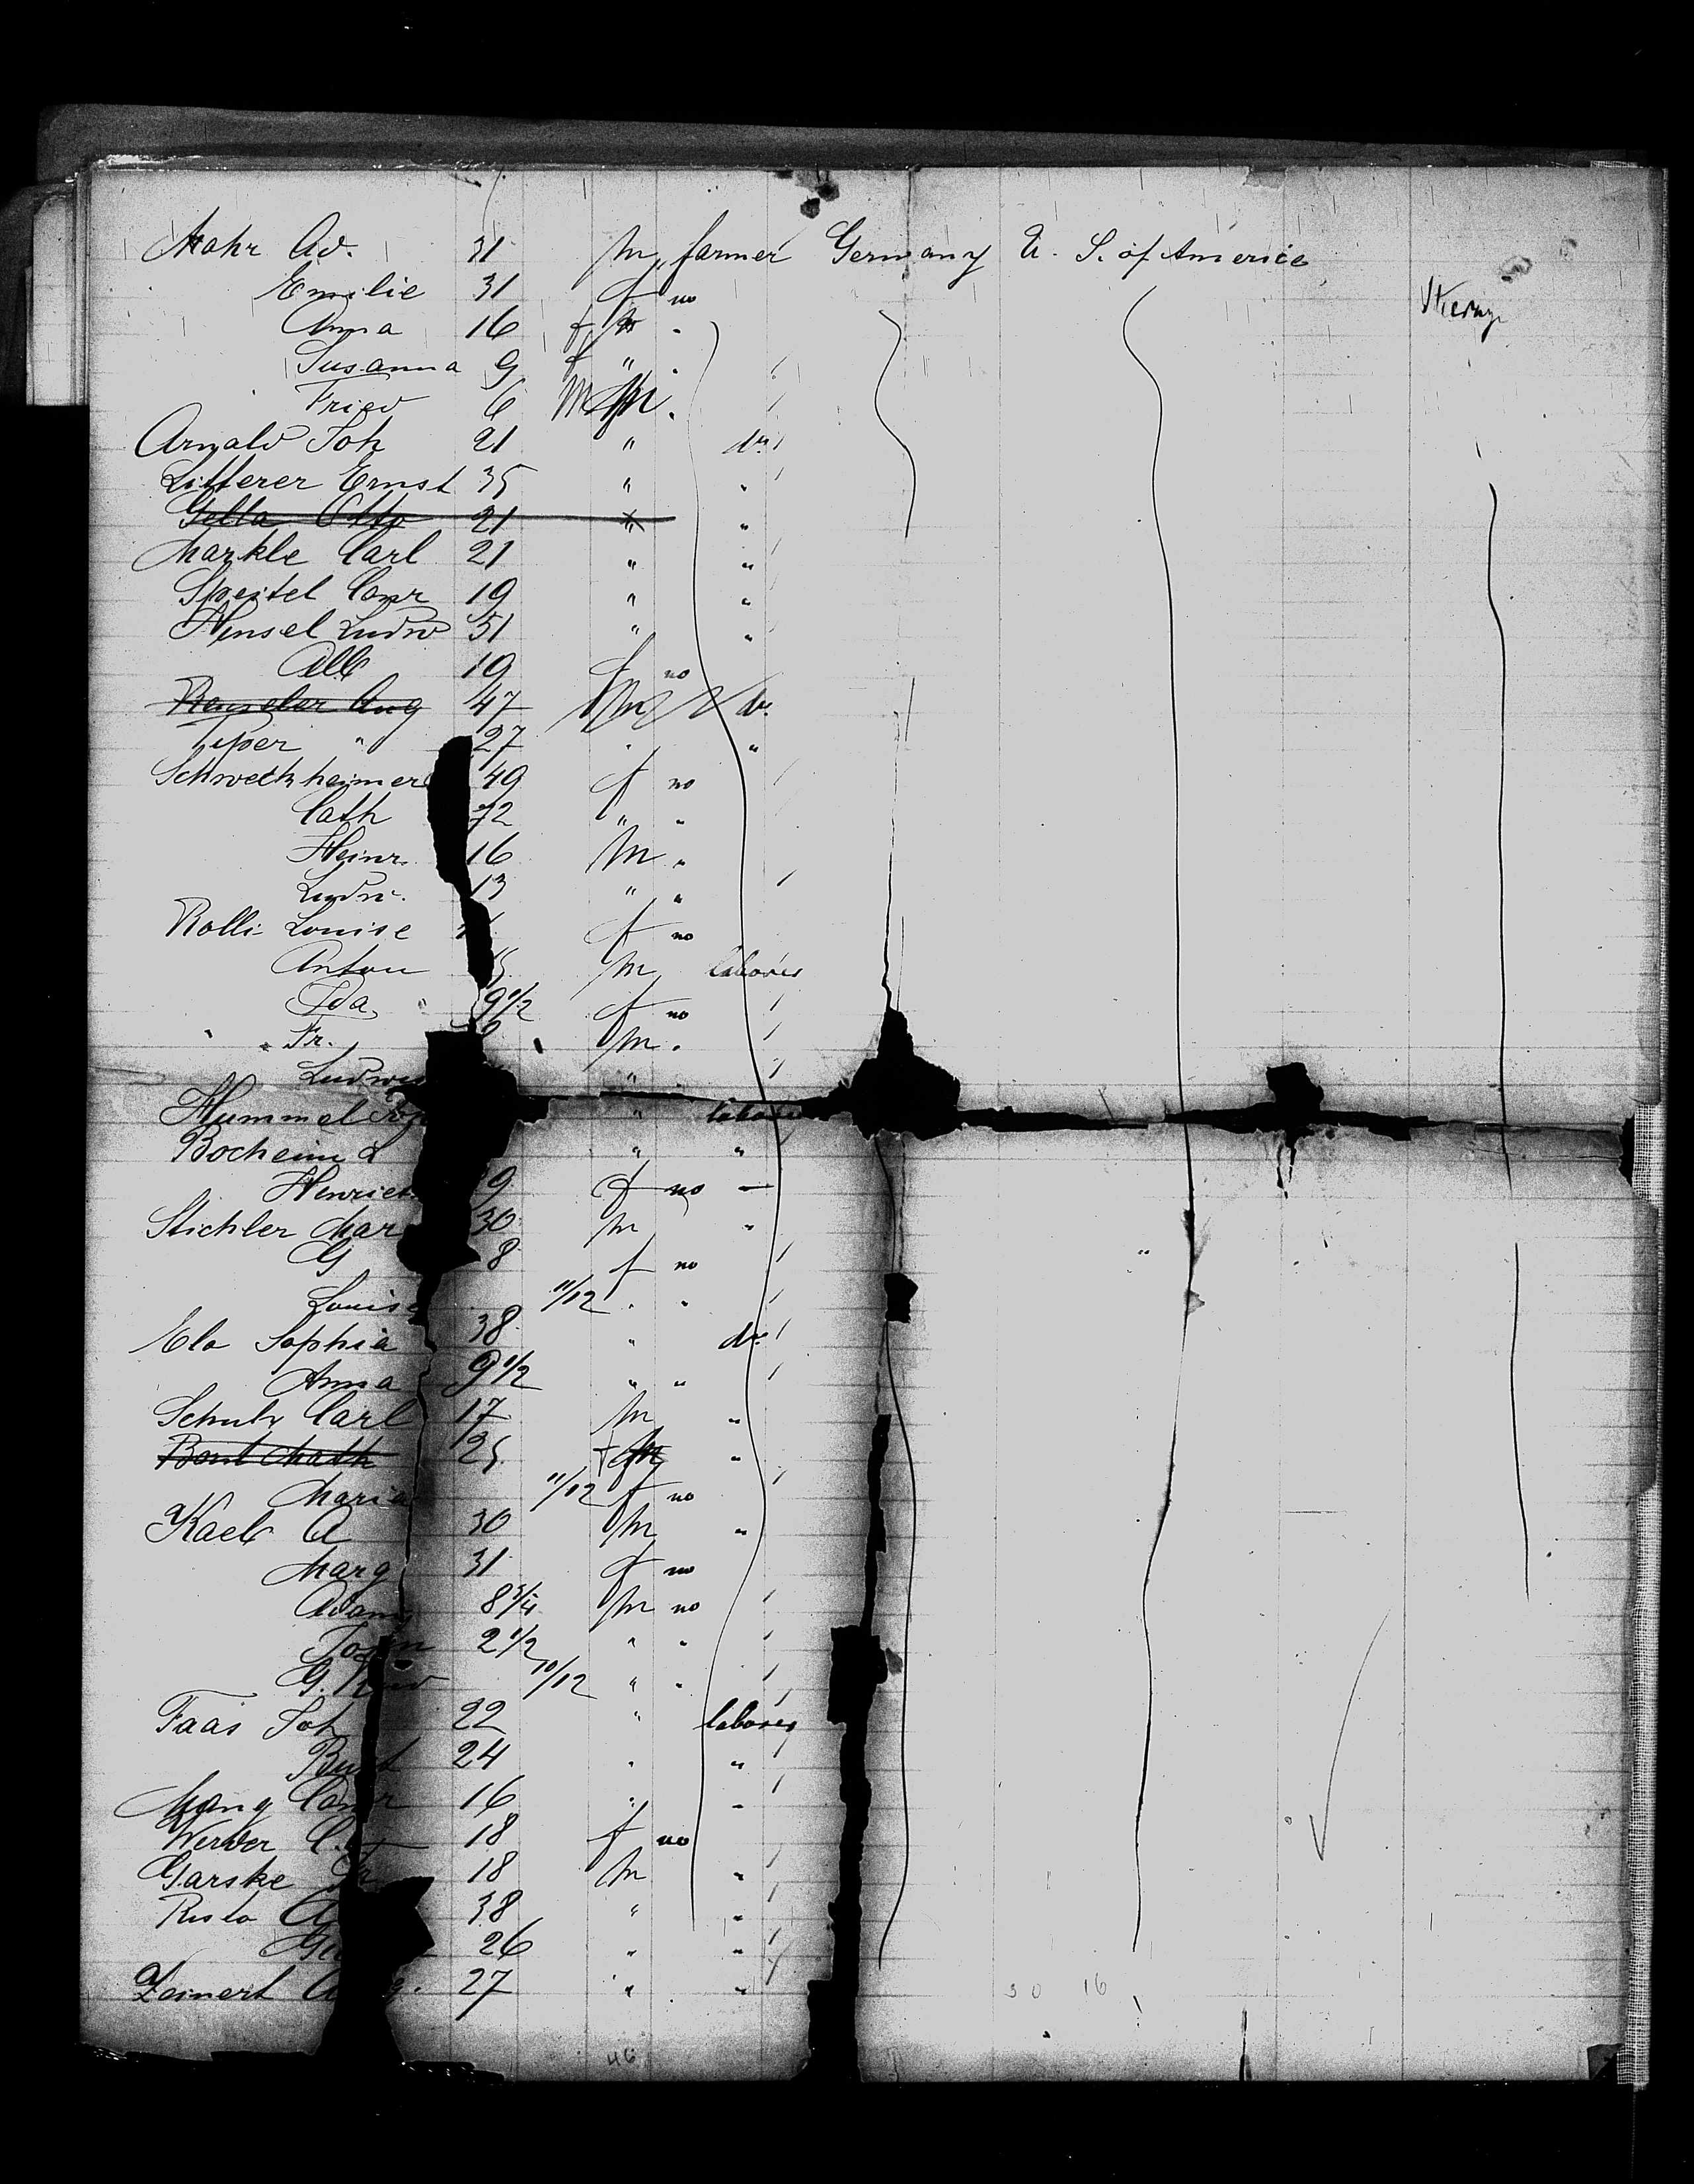 Mohr Ad. 31 m farmer Germany U. S. of America
Emilie 31 f no
Anna 16 f "
Susanna 9 f " "
Fried 6 M
Arnold Joh 21 " do
Litterer Ernst 35 " "
Gella Otto 21 " "
Markle Carl 21 " "
Speitel Conr 19 " "
Hensel Ludw 51 " "
Alb 19 f no
Aug 47 m do
Piper " 27 " "
Schweckheimer 49 f no
Cath 72 " "
Heinr. 16 m "
Ludw. 13 " "
Rolli Louise f no
Anton m laborer
Ida 9 1/2 f no
Fr. m "
Ludwig "
Hummel " laborer
Bocheim L " "
Henriet 9 f no —
Stichler Mar 30 m "
G 8 f no
Louise 11/12 " "
Elo Sophia 38 " do
Anna 9 1/2 " "
Schulz Carl 17 m "
Math 25 f "
Maria 11/12 f no
Kaeb A 30 m "
Marg 31 f no
Adam 8 3/4 m no
2 1/2 " "
G. 10/12 " "
Faas Joh 22 " laborer
24 " "
Mang Conr 16 " "
Werder C. 18 f no
Garske 18 m "
Risto A 38 " "
26 " "
Zeinert A g. 27 " "
30 16
46